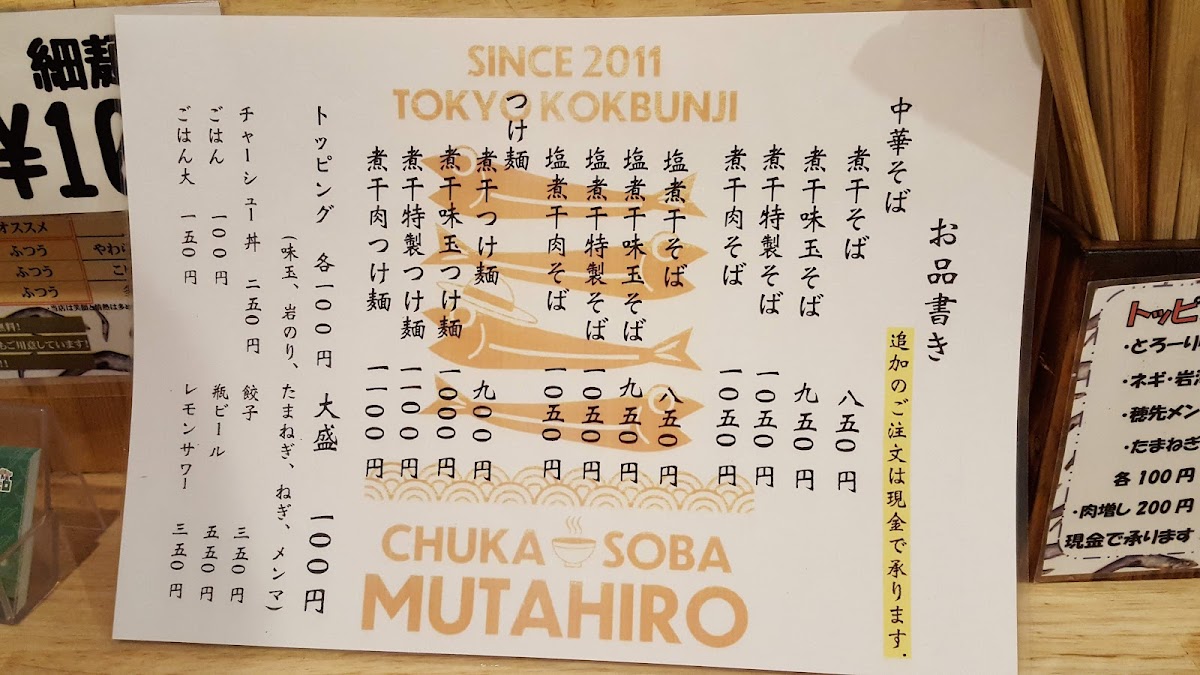 お品書き
追加のご注文は現金で承ります.
中華そば
煮干そば 八五〇円
煮干味玉そば 九五〇円
煮干特製そば 一〇五〇円
煮干肉そば 一〇五〇円
塩煮干そば 八五〇円
塩煮干味玉そば 九五〇円
塩煮干特製そば 一〇五〇円
塩煮干肉そば 一〇五〇円
つけ麺
煮干つけ麺 九〇〇円
煮干味玉つけ麺 一〇〇〇円
煮干特製つけ麺 一一〇〇円
煮干肉つけ麺 一一〇〇円
トッピング 各一〇〇円 大盛 一〇〇円
(味玉、岩のり、たまねぎ、ねぎ、メンマ)
チャーシュー丼 二五〇円
ごはん 一〇〇円
ごはん大 一五〇円
餃子 三五〇円
瓶ビール 五五〇円
レモンサワー 三五〇円
SINCE 2011
TOKYO KOKBUNJI
CHUKA SOBA
MUTAHIRO
細麺
¥10
オススメ
ふつう やわ
ふつう
ふつう
もご用意しています!
トッピ
・とろーり
・ネギ・岩
・穂先メン
・たまねぎ
各100円
・肉増し200円
現金で承ります